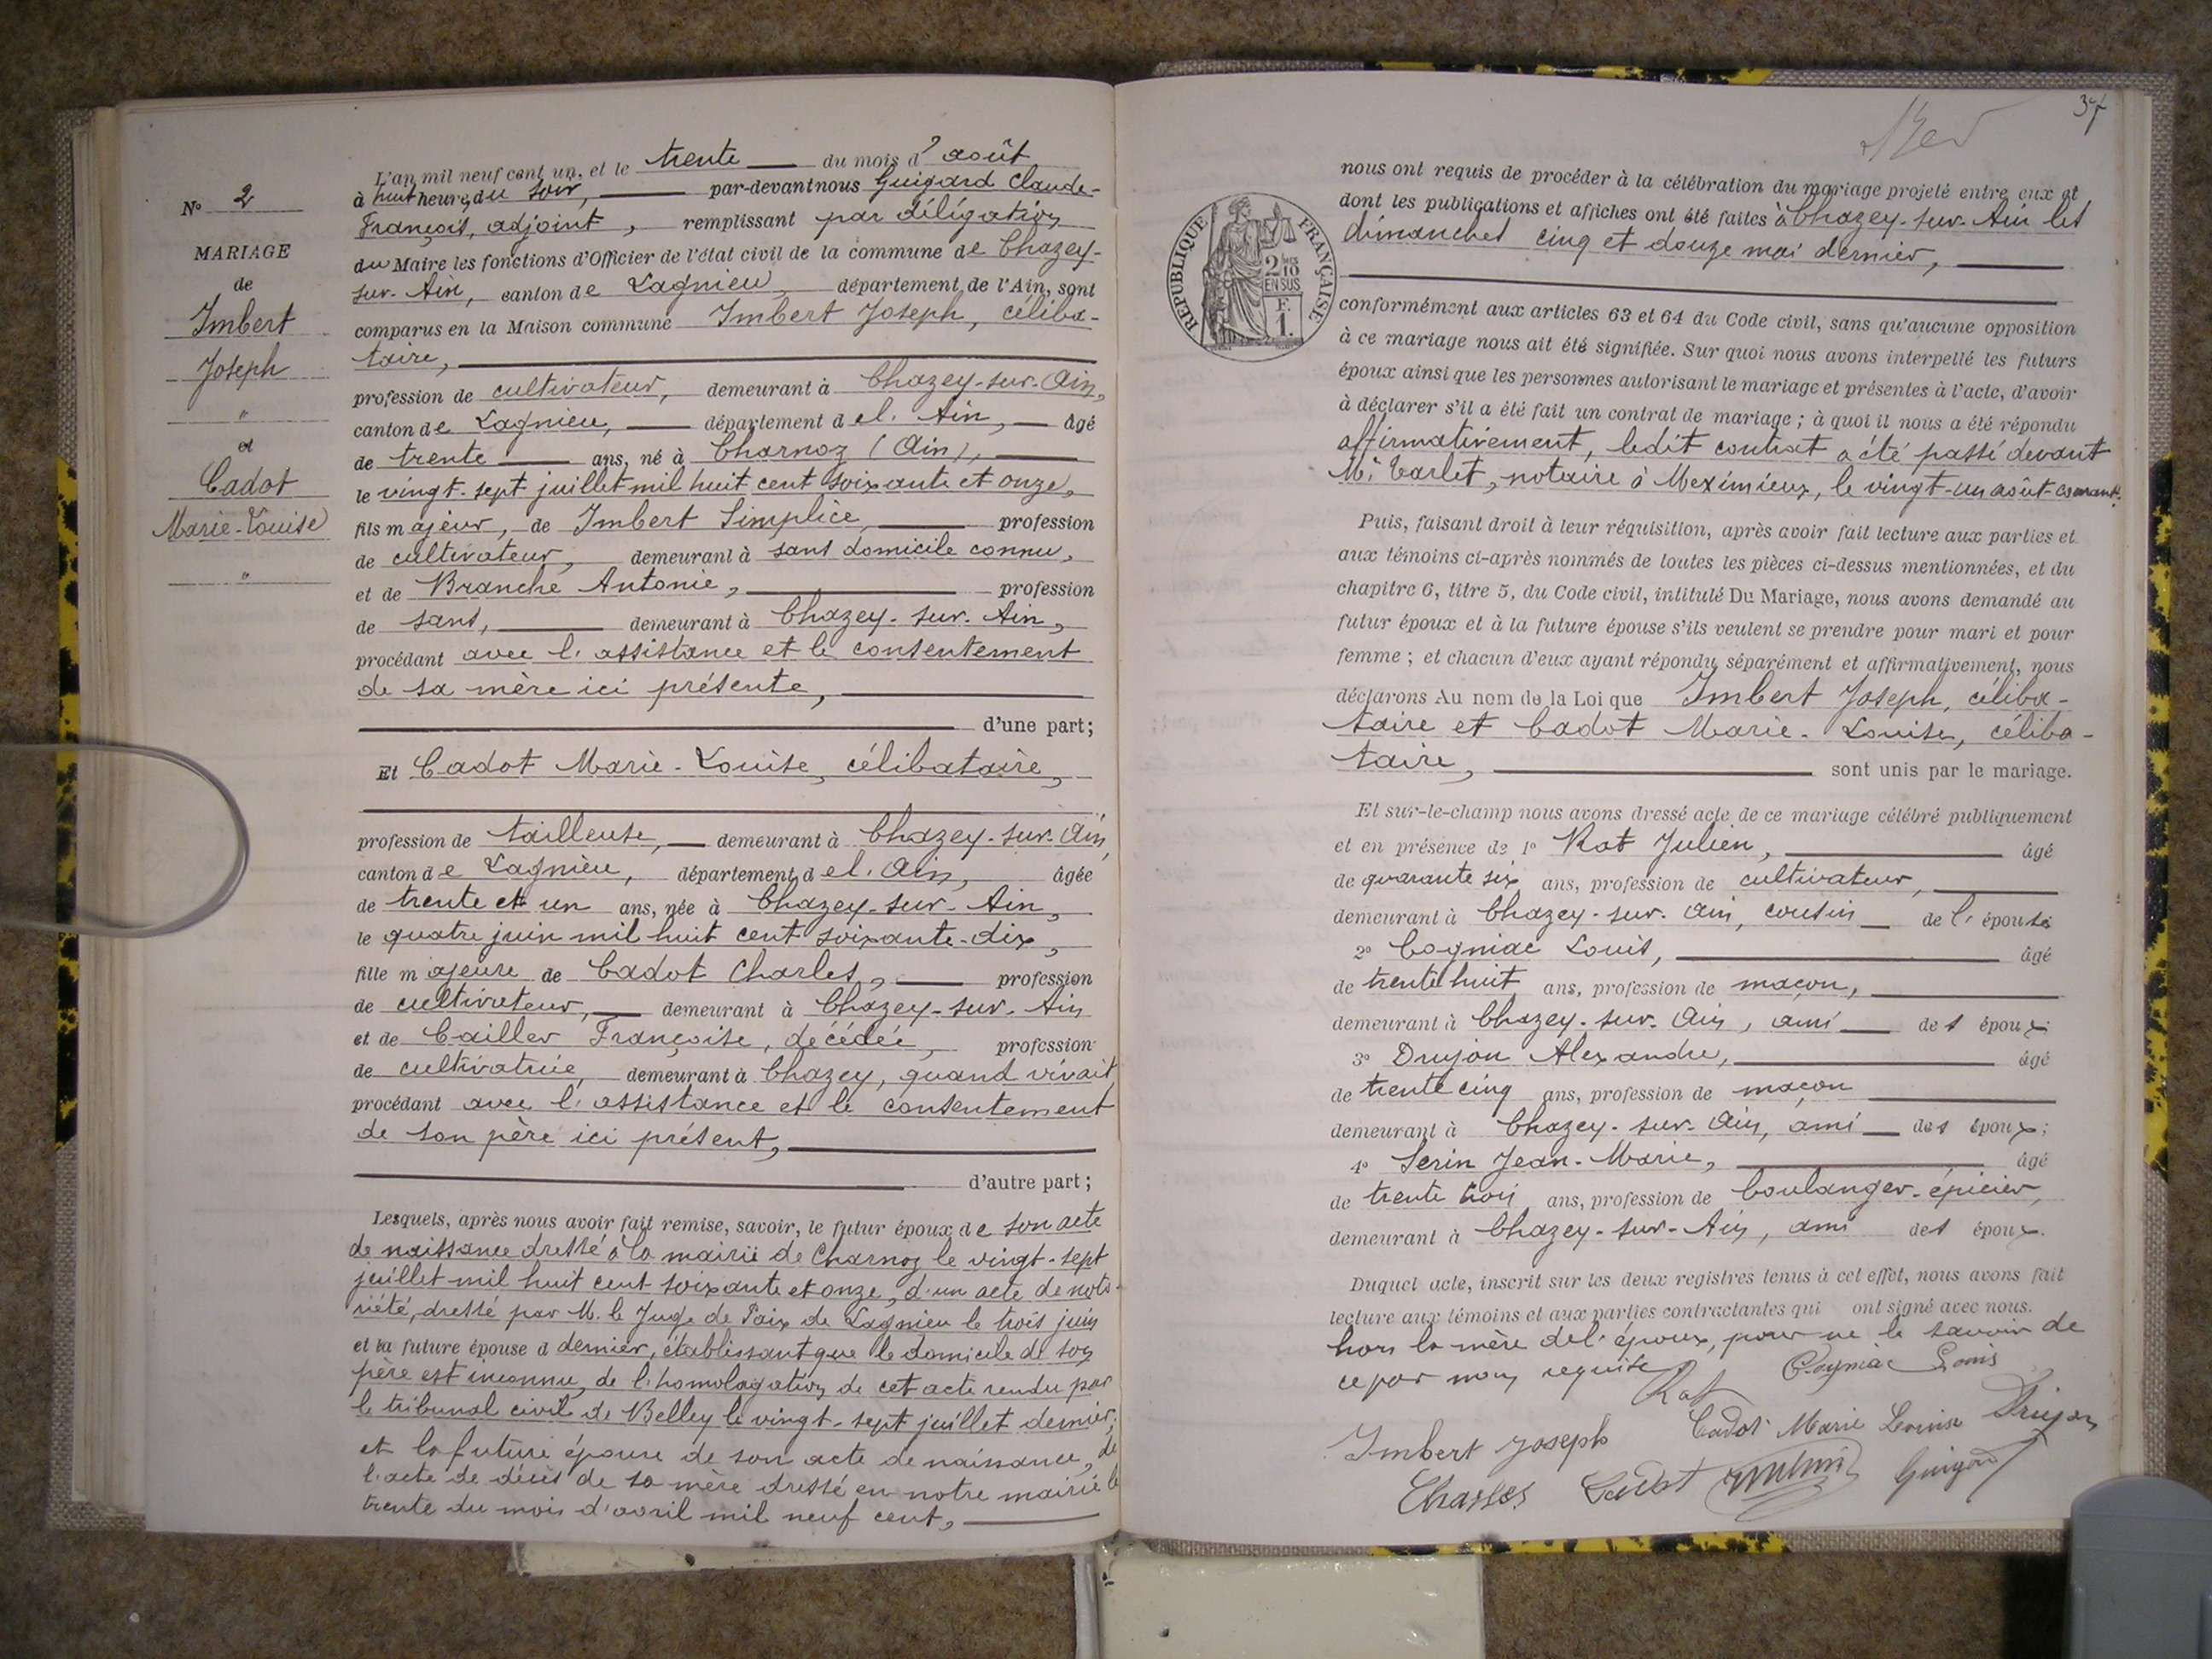 N° 2
MARIAGE
de
Imbert
Joseph
"
et
Cadot
Marie-Louise
"
L'an mil neuf cent un, et le trente du mois d'août
à huit heures du soir, par-devant nous Guigard Claude-
François, adjoint, remplissant par délégation
du Maire les fonctions d'Officier de l'état civil de la commune de Chazey-
sur-Ain, canton de Lagnieu, département de l'Ain, sont
comparus en la Maison commune Imbert Joseph, céliba-
taire,
profession de cultivateur, demeurant à Chazey-sur-Ain,
canton de Lagnieu, département de l'Ain, âgé
de trente ans, né à Charnoz (Ain),
le vingt-sept juillet mil huit cent soixante et onze,
fils majeur, de Imbert Simplice, profession
de cultivateur, demeurant à sans domicile connu,
et de Branche Antonie, profession
de sans, demeurant à Chazey-sur-Ain,
procédant avec l'assistance et le consentement
de sa mère ici présente,
d'une part;
Et Cadot Marie-Louise, célibataire,
profession de tailleuse, demeurant à Chazey-sur-Ain,
canton de Lagnieu, département de l'Ain, âgée
de trente et un ans, née à Chazey-sur-Ain,
le quatre juin mil huit cent soixante-dix,
fille majeure de Cadot Charles, profession
de cultivateur, demeurant à Chazey-sur-Ain
et de Cailler Françoise, décédée, profession
de cultivatrice, demeurant à Chazey, quand vivait
procédant avec l'assistance et le consentement
de son père ici présent,
d'autre part;
Lesquels, après nous avoir fait remise, savoir, le futur époux de son acte
de naissance dressé à la mairie de Charnoz le vingt-sept
juillet mil huit cent soixante et onze, d'un acte de noto-
riété, dressé par M. le Juge de Paix de Lagnieu le trois juin
et la future épouse d dernier, établissant que le domicile de son
père est inconnu, de l'homologation de cet acte rendu par
le tribunal civil de Belley le vingt-sept juillet dernier;
et la future épouse de son acte de naissance, de
l'acte de décès de sa mère dressé en notre mairie le
trente du mois d'avril mil neuf cent,
37
RÉPUBLIQUE FRANÇAISE
2/10 EN SUS
F.
1.
nous ont requis de procéder à la célébration du mariage projeté entre eux et
dont les publications et affiches ont été faites à Chazey-sur-Ain les
dimanches cinq et douze mai dernier,
conformément aux articles 63 et 64 du Code civil, sans qu'aucune opposition
à ce mariage nous ait été signifiée. Sur quoi nous avons interpellé les futurs
époux ainsi que les personnes autorisant le mariage et présentes à l'acte, d'avoir
à déclarer s'il a été fait un contrat de mariage; à quoi il nous a été répondu
affirmativement, ledit contrat a été passé devant
Me Carlet, notaire à Meximieux, le vingt-un août courant.
Puis, faisant droit à leur réquisition, après avoir fait lecture aux parties et
aux témoins ci-après nommés de toutes les pièces ci-dessus mentionnées, et du
chapitre 6, titre 5, du Code civil, intitulé Du Mariage, nous avons demandé au
futur époux et à la future épouse s'ils veulent se prendre pour mari et pour
femme; et chacun d'eux ayant répondu séparément et affirmativement, nous
déclarons Au nom de la Loi que Imbert Joseph, céliba-
taire et Cadot Marie-Louise, céliba-
taire, sont unis par le mariage.
Et sur-le-champ nous avons dressé acte de ce mariage célébré publiquement
et en présence de 1° Rat Julien, âgé
de quarante six ans, profession de cultivateur,
demeurant à Chazey-sur-Ain, cousin de l'épouse
2° Cogniac Louis, âgé
de trente huit ans, profession de maçon,
demeurant à Chazey-sur-Ain, ami des époux
3° Drujon Alexandre, âgé
de trente cinq ans, profession de maçon
demeurant à Chazey-sur-Ain, ami des époux;
4° Serin Jean-Marie, âgé
de trente trois ans, profession de boulanger-épicier,
demeurant à Chazey-sur-Ain, ami des époux.
Duquel acte, inscrit sur les deux registres tenus à cet effet, nous avons fait
lecture aux témoins et aux parties contractantes qui ont signé avec nous.
hors la mère de l'époux, pour ne le savoir de
ce par nous requise
Rat Cogniac Louis
Imbert Joseph Cadot Marie Louise Drujon
Charles Cadot Guigard